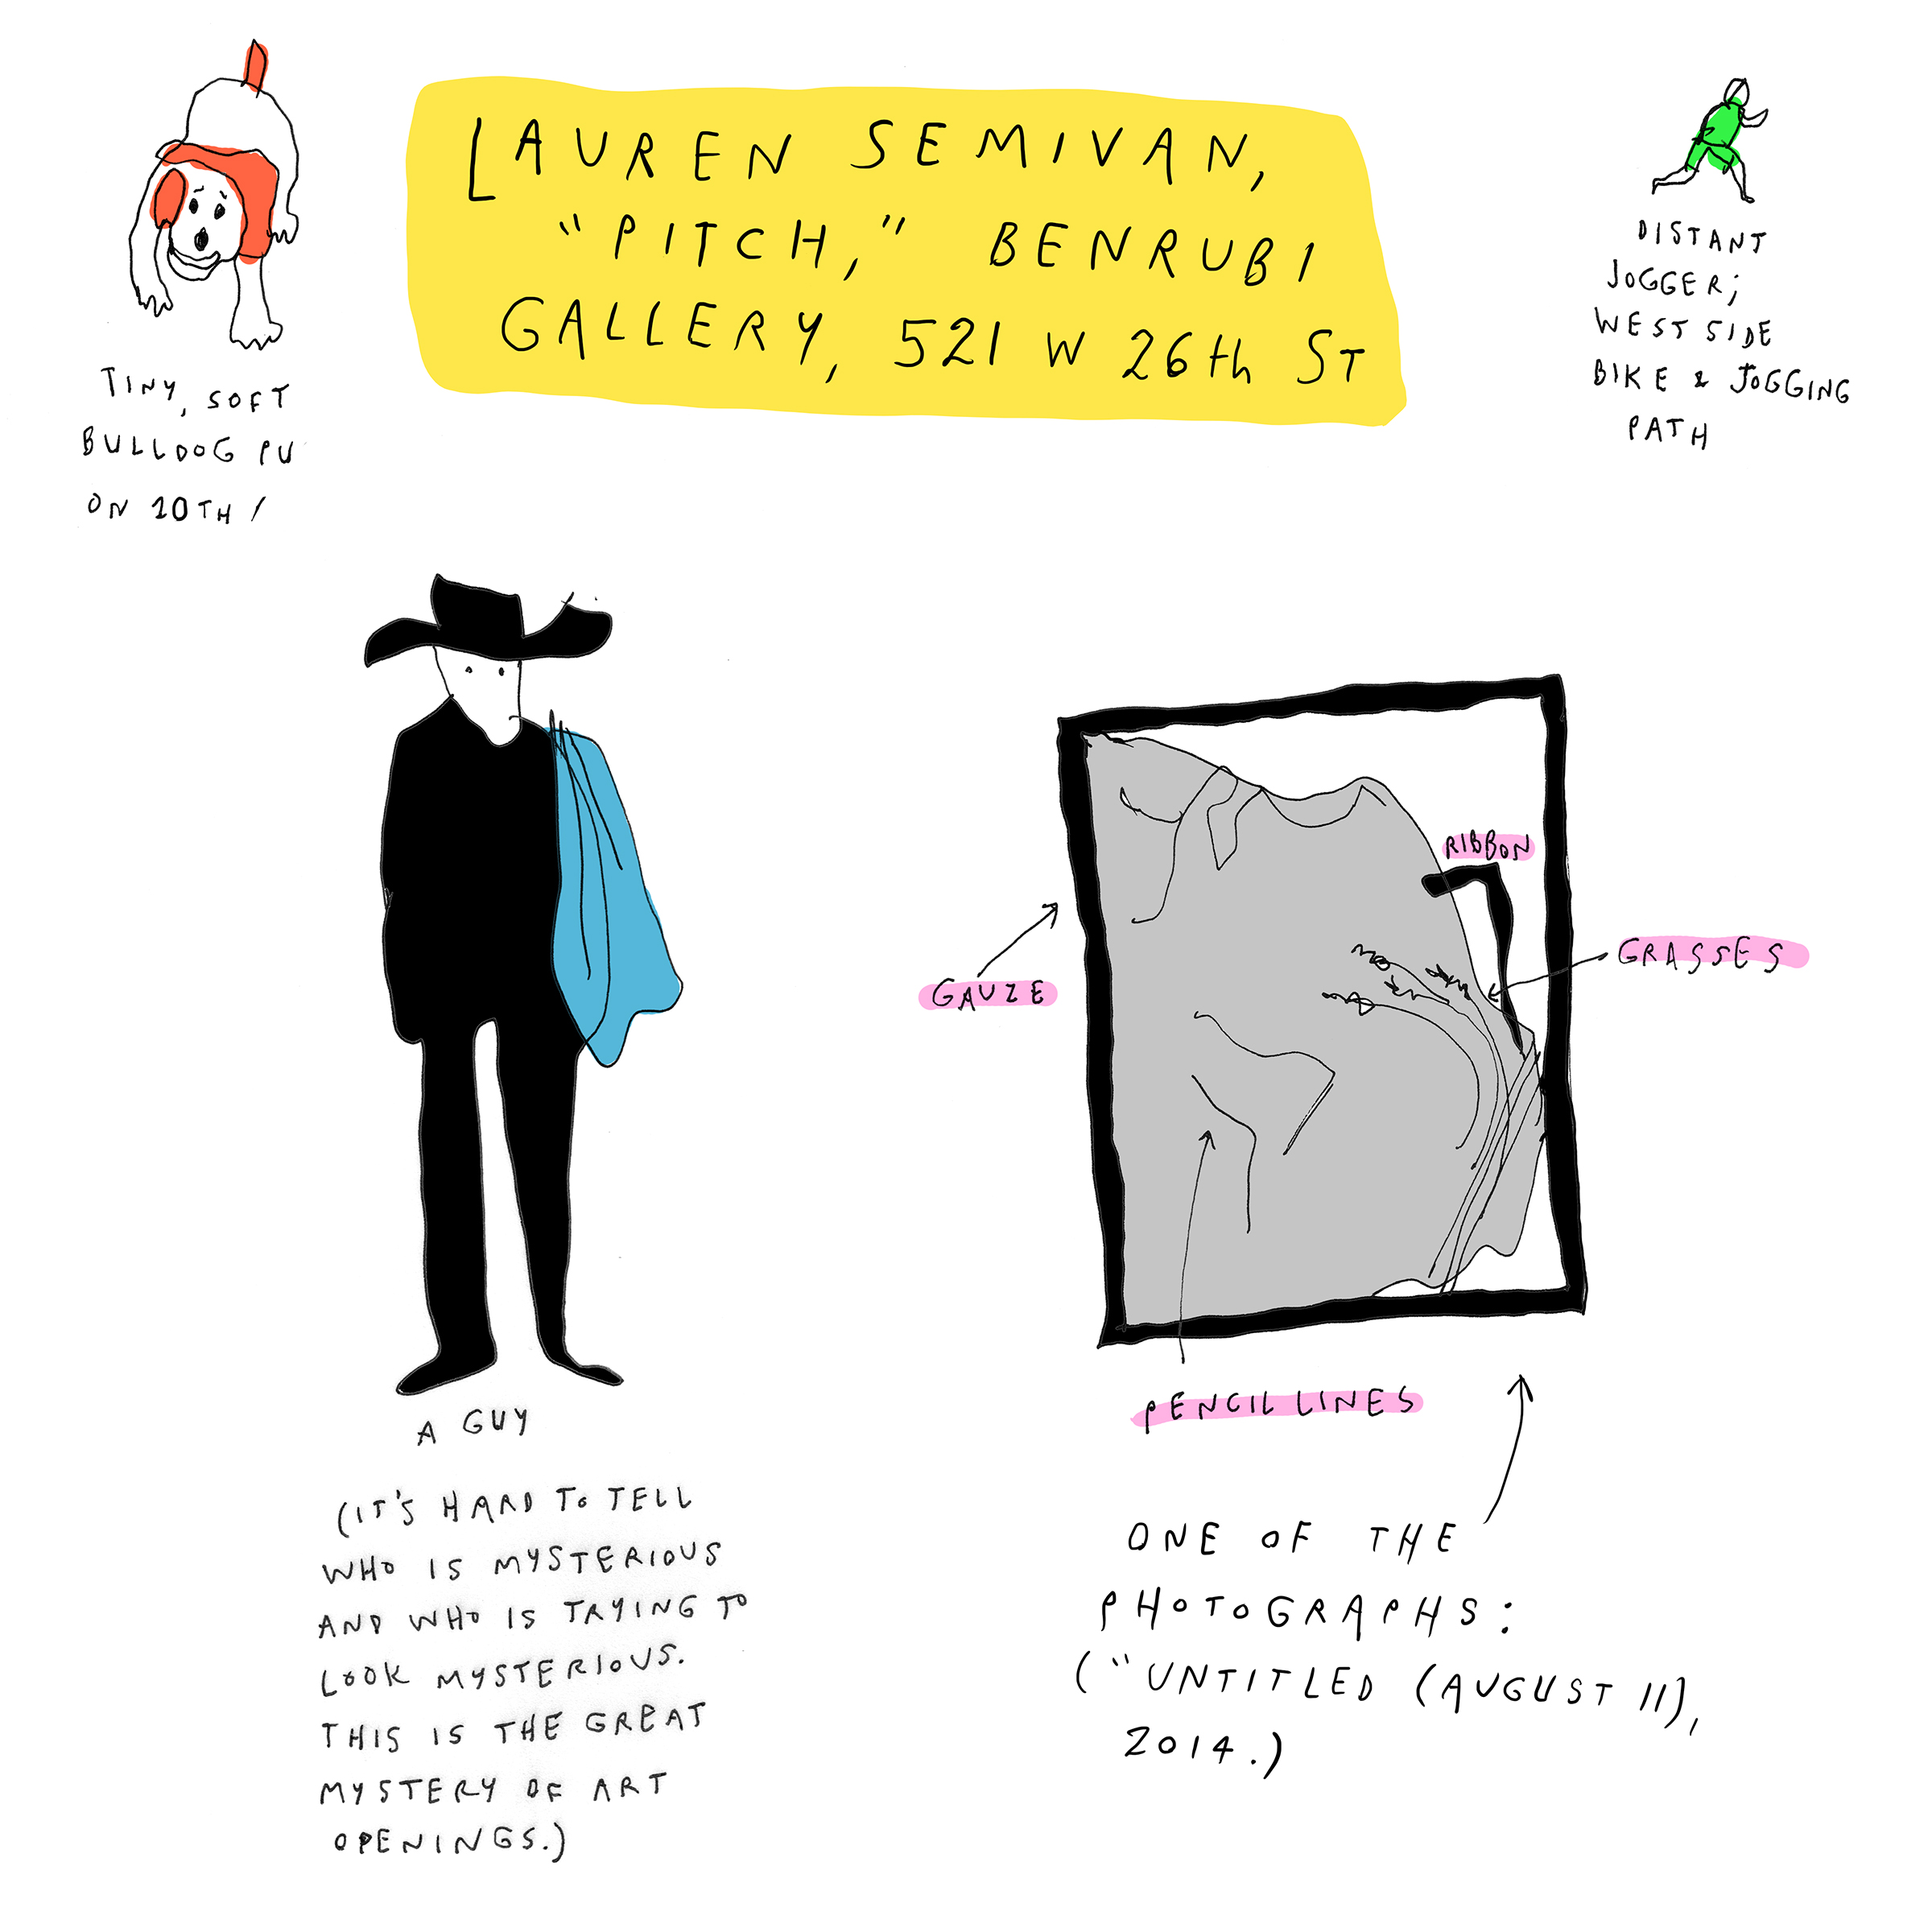 LAUREN SEMIVAN,
"PITCH," BENRUBI
GALLERY, 521 W 26th ST
TINY, SOFT
BULLDOG PU
ON 10TH!
DISTANT
JOGGER;
WEST SIDE
BIKE & JOGGING
PATH
A GUY
(IT'S HARD TO TELL
WHO IS MYSTERIOUS
AND WHO IS TRYING TO
LOOK MYSTERIOUS.
THIS IS THE GREAT
MYSTERY OF ART
OPENINGS.)
RIBBON
GRASSES
GAUZE
PENCIL LINES
ONE OF THE
PHOTOGRAPHS:
("UNTITLED (AUGUST 11),
2014.)